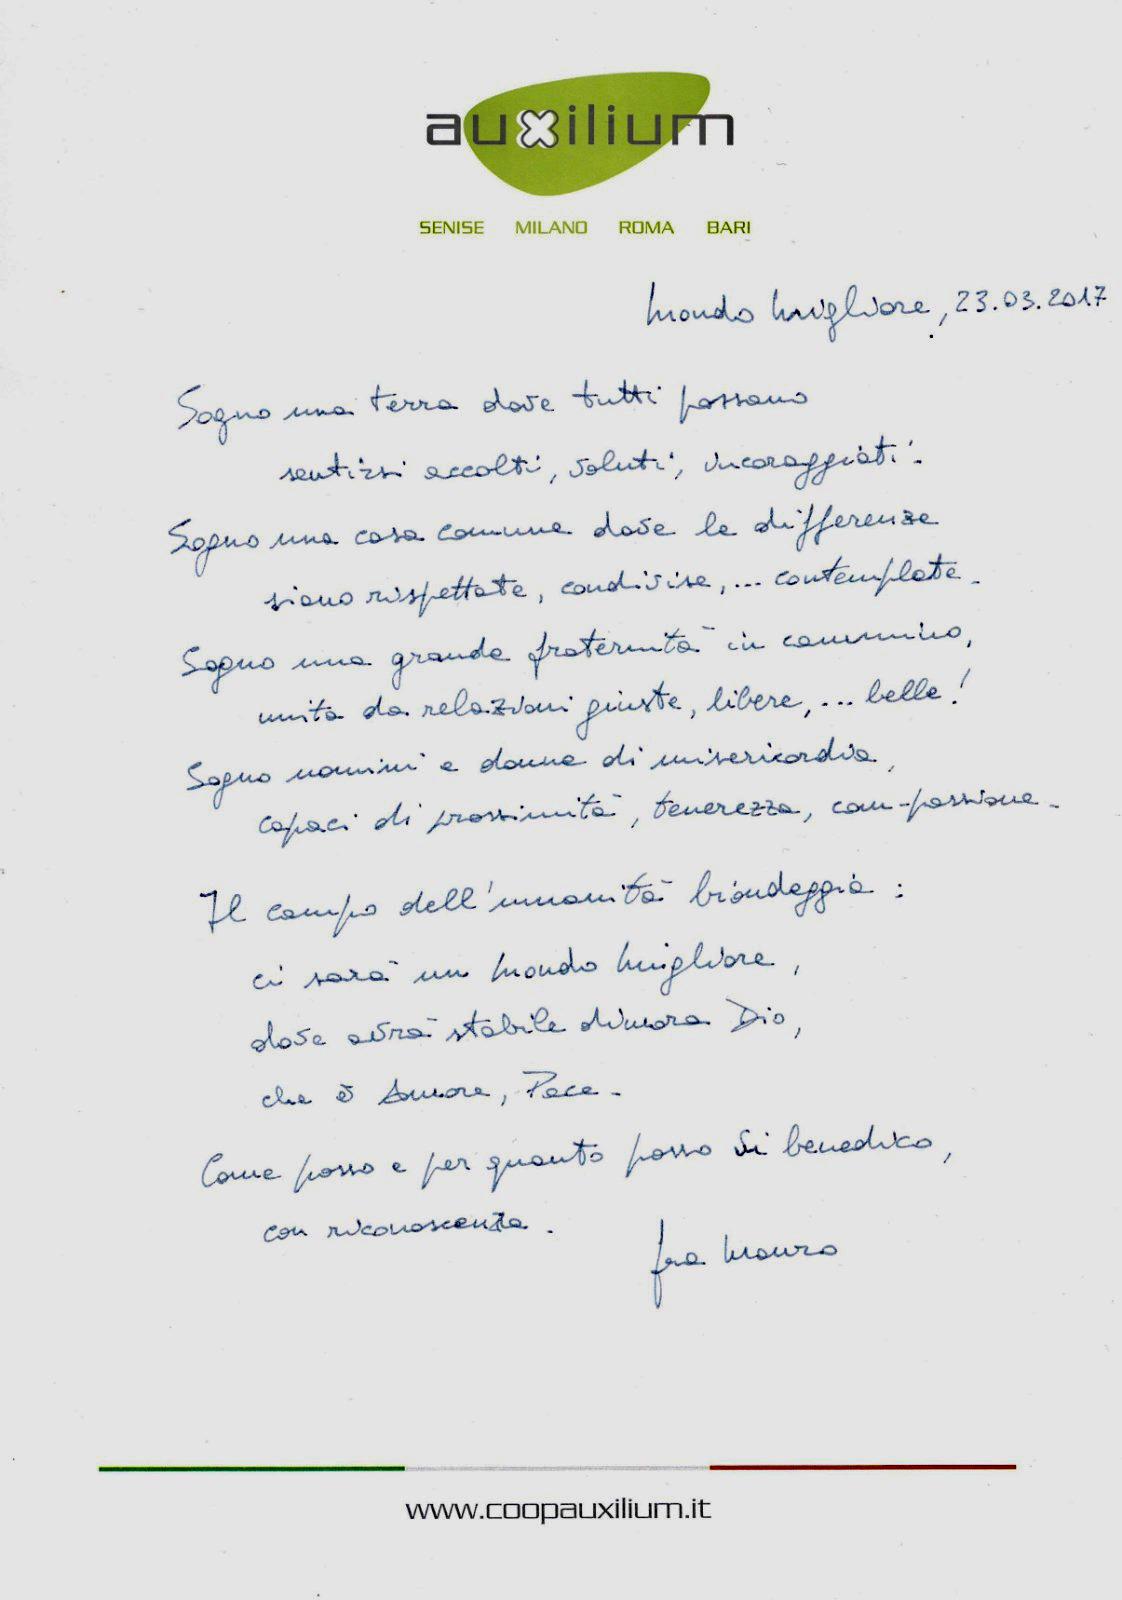 auxilium
SENISE MILANO ROMA BARI
Mondo Migliore, 23.03.2017
Sogno una terra dove tutti possano
sentirsi accolti, voluti, incoraggiati.
Sogno una casa comune dove le differenze
siano rispettate, condivise, ... contemplate.
Sogno una grande fraternità in cammino,
unita da relazioni giuste, libere, ... belle!
Sogno uomini e donne di misericordia,
capaci di prossimità, tenerezza, com-passione.
Il campo dell'umanità biondeggia:
ci sarà un Mondo Migliore,
dove avrà stabile dimora Dio,
che è Amore, Pace.
Come posso e per quanto posso vi benedico,
con riconoscenza.
fra Mauro
www.coopauxilium.it